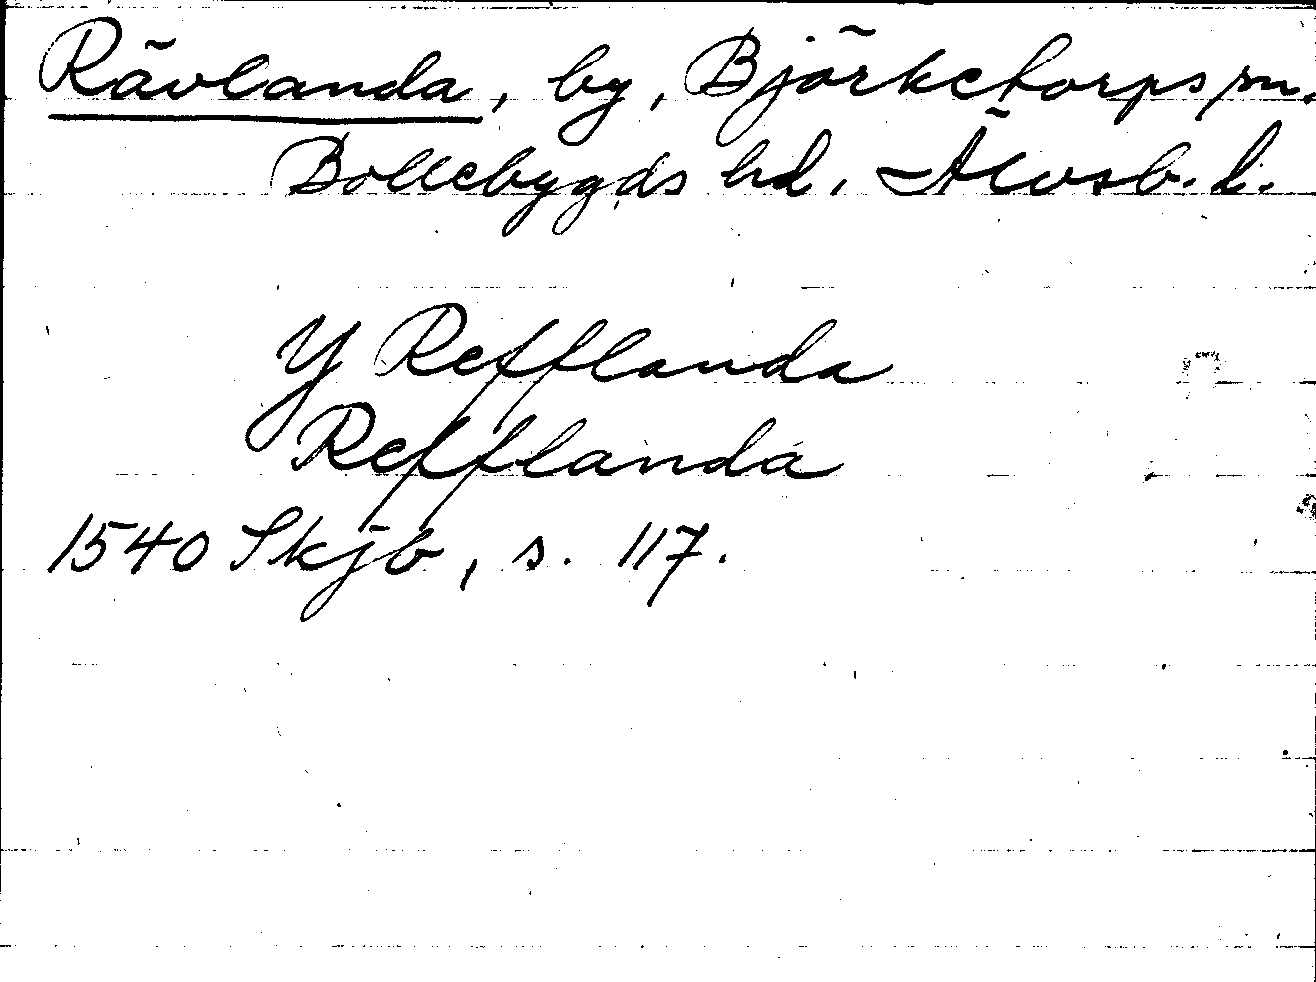 Rävlanda, by, Björketorps sn.
Bollebygds hd, Älvsb. l.
Y Refflanda
Refflanda
1540 Skjb, s. 117.